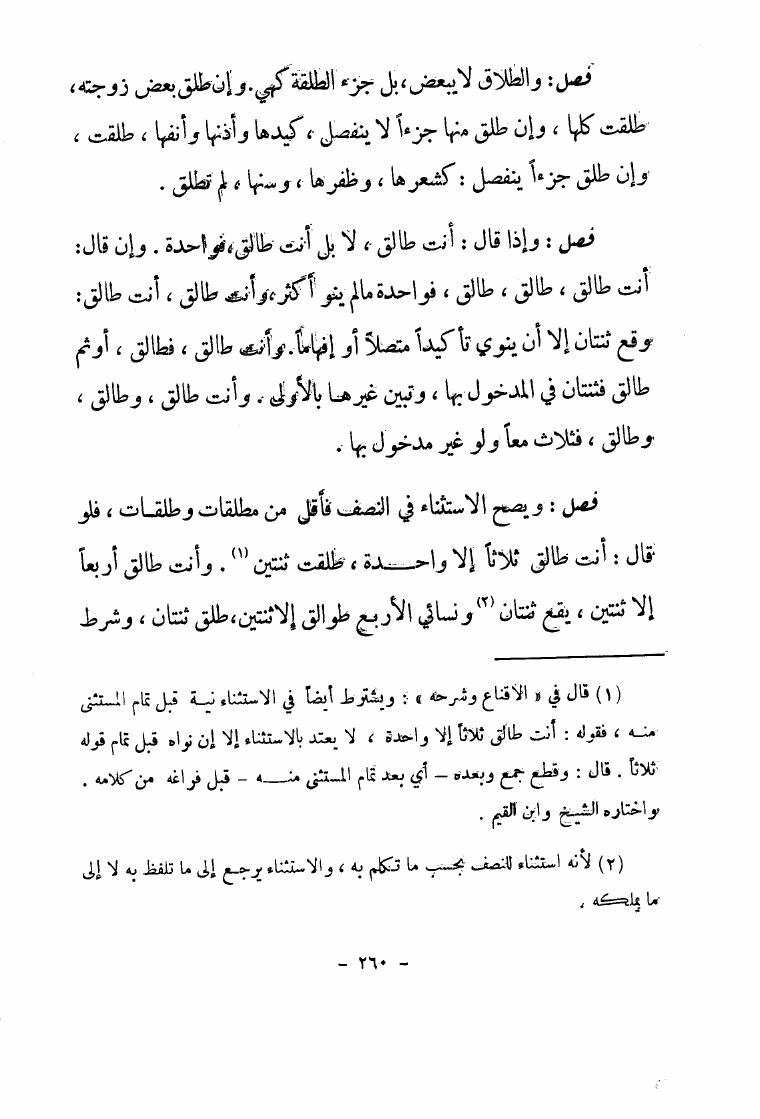 فصل : والطلاق لا يبعض ، بل جزء الطلقة كهي . وإن طلق بعض زوجته ،
طلقت كلها ، وإن طلق منها جزءاً لا ينفصل ، كيدها وأذنها وأنفها ، طلقت ،
وإن طلق جزءاً ينفصل : كشعرها ، وظفرها ، وسنها ، لم تطلق .
فصل : وإذا قال : أنت طالق ، لا بل أنت طالق ، فواحدة . وإن قال :
أنت طالق ، طالق ، طالق ، فواحدة مالم ينو أكثر ، وأنت طالق ، أنت طالق :
وقع ثنتان إلا أن ينوي تأكيداً متصلاً أو إفهاماً . وأنت طالق ، فطالق ، أو ثم
طالق فثنتان في المدخول بها ، وتبين غيرها بالأولى . وأنت طالق ، وطالق ،
وطالق ، فثلاث معاً ولو غير مدخول بها .
فصل : ويصح الاستثناء في النصف فأقل من مطلقات وطلقات ، فلو
قال : أنت طالق ثلاثاً إلا واحدة ، طلقت ثنتين (١) . وأنت طالق أربعاً
إلا ثنتين ، يقع ثنتان (٢) ونسائي الأربع طوالق إلا ثنتين ، طلق ثنتان ، وشرط
(١) قال في « الاقناع وشرحه » : ويشترط أيضاً في الاستثناء نية قبل تمام المستثنى
منه ، فقوله : أنت طالق ثلاثاً إلا واحدة ، لا يعتد بالاستثناء إلا إن نواه قبل تمام قوله
ثلاثاً . قال : وقطع جمع وبعده – أي بعد تمام المستثنى منه – قبل فراغه من كلامه .
واختاره الشيخ وابن القيم .
(٢) لأنه استثناء للنصف بحسب ما تكلم به ، والاستثناء يرجع إلى ما تلفظ به لا إلى
ما يملكه .
– ٢٦٠ –